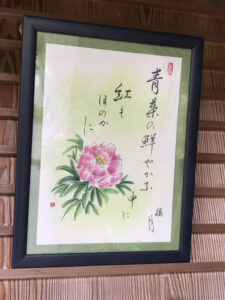 青葉の鮮やかな
中に
紅も
ほのか
に